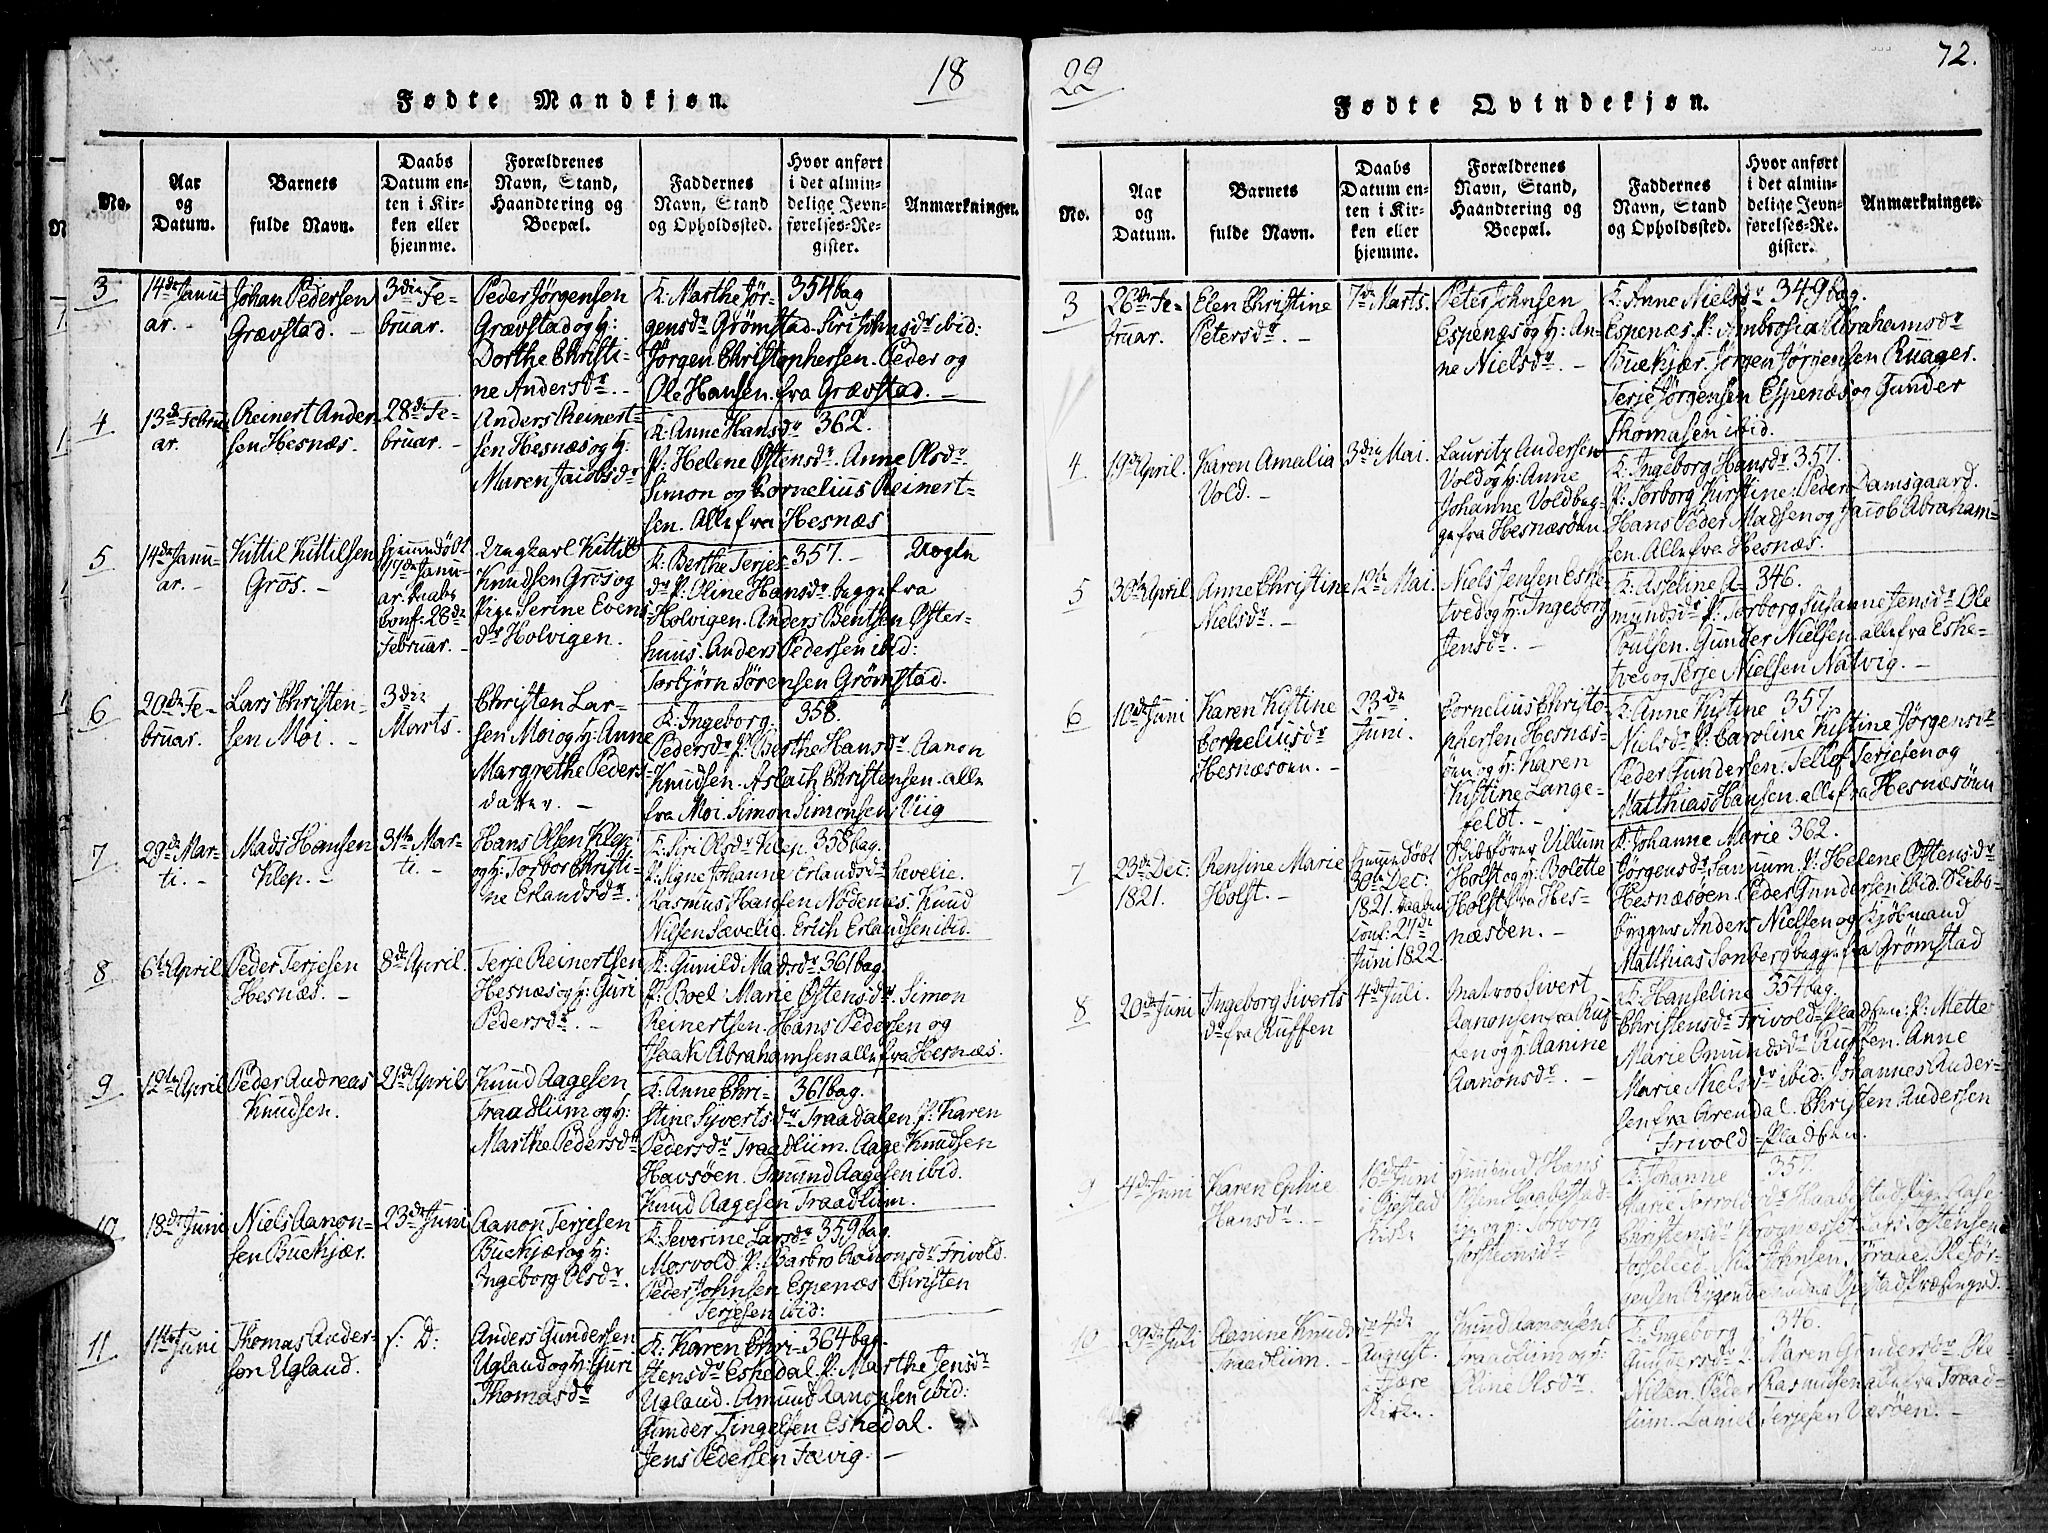 18
Fødte Mandkjøn.
No.
Aar og Datum.
Barnets fulde Navn.
Daabs Datum enten i Kirken eller hjemme.
Forældrenes Navn, Stand, Haandtering og Boepæl.
Faddernes Navn, Stand og Opholdssted.
Hvor anført i det almindelige Jevnførelses-Register.
Anmærkninger.
3
14de Januar. -
Johan Pedersen
Grævstad. -
3die Februar.
Peder Jørgensen
Grævstad og H:
Dorthe Christine
Andersdr. -
K: Marthe Jør- 354 bag
gensdr Grømstad. Siri Johnsdr ibid:
Jørgen Christophersen. Peder og
Ole Hansen fra Grævstad. -
4
13de Februar.
Reinert Andersen
Hesnæs. -
28de Februar. -
Anders Reinertsen
Hesnæs og H:
Maren Jacobsdr
K: Anne Hansdr 362.
P: Helene Østensdr. Anne Olsdr.
Simon og Cornelius Reinert-
sen. Alle fra Hesnæs
5
14de Januar. -
Kittil Kittilsen
Grøs. -
hjemmedøbt
17de Januar. Daabs
Conf: 28de
Februar. -
Ungkarl Kittil
Knudsen Grøs og
Pige Serine Evensdr
Holvigen.
K: Berthe Terjes- 357. -
dr P: Oline Hansdr begge fra
Holvigen. Anders Bentsen Øster-
huus. Anders Pedersen ibid:
Torbjørn Sørensen Grømstad.
Uægte
6
20de Februar.
Lars Christensen
Moi. -
3die Marts.
Christen Larsen
Moi og H: Anne
Margrethe Peders-
datter. -
K: Ingeborg 358.
Pedersdr P: Berthe Hansdr. Aanon
Knudsen. Aslach Christensen. alle
fra Moi. Simon Simonsen Viig
7
29de Marti. -
Mads Hansen
Klep. -
31te Marti. -
Hans Olsen Klep
og H: Torbor Christine
Erlandsdr.
K: Siri Olsdr Klep. 358 bag.
P: Signe Johanne Erlandsdr Sævelie.
Rasmus Hansen Nødenes. Knud
Nilsen Sævelie. Erich Erlandsen ibid.
8
6te April
Peder Terjesen
Hesnæs. -
8de April.
Terje Reinertsen
Hesnæs og H: Guri
Pedersdr. -
K: Gunild Madsdr 361 bag.
P: Boel Marie Østensdr. Simon
Reinertsen. Hans Pedersen og
Isaak Abrahamsen alle fra Hesnæs.
9
12te April
Peder Andreas
Knudsen.
21de April
Knud Aagesen
Traadlium og H:
Marthe Pedersdr
K: Anne Chri- 361 bag.
stine Syvertsdr Traadalen P: Karen
Pedersdr Traadlium. Aage Knudsen
Havsøen. Omund Aagesen ibid.
Knud Aagesen Traadlium.
10
18de Juni
Niels Aanonsen
Buekjær.
23de Juni
Aanon Terjesen
Buekjær og H:
Ingeborg Olsdr.
K: Severine Larsdr 359 bag.
Morvold. P: Barbro Aanonsdr Frivold.
Peder Johnsen Espenæs Christen
Terjesen ibid:
11
11te Juni
Thomas Andersøn
Ugland.
s: D:
Anders Gundersen
Ugland og H: Guri
Thomasdr
K: Karen Chri- 364 bag.
stensdr Eshedal. P: Marthe Jensdr
Ugland. Amund Aanonsen ibid:
Gunder Tingelsen Eshedal.
Jens Pedersen Fævig. -
22
72.
Fødte Qvindekjøn.
No.
Aar og Datum.
Barnets fulde Navn.
Daabs Datum enten i Kirken eller hjemme.
Forældrenes Navn, Stand, Haandtering og Boepæl.
Faddernes Navn, Stand og Opholdssted.
Hvor anført i det almindelige Jevnførelses-Register.
Anmærkninger.
3
26de Februar.
Elen Christine
Petersdr. -
7de Marts.
Peter Johnsen
Espenæs og H: Anne
Nielsdr. -
K: Anne Nielsdr 349 bag.
Espenæs. P: Ambrosia Abrahamsdr
Buekjær. Jørgen Jørgensen Ruager.
Terje Jørgensen Espenæs og Gunder
Thomasen ibid.
4
19de April.
Karen Amalia
Vold. -
3die Mai.
Lauritz Andersen
Vold og H: Anne
Johanne Vold beg-
ge fra Hesnæsøen
K: Ingeborg Hansdr 357.
P: Torborg Kirstine. Peder Damsgaard.
Hans Peder Madsen og Jacob Abraham-
sen. Alle fra Hesnæs.
5
30te April
Anne Christine
Nielsdr. -
12te Mai.
Niels Jensen Eshe-
tved og H: Ingeborg
Jensdr. -
K: Asseline A- 346.
mundsdr P: Torborg Susanne Jensdr Ole
Poulsen. Gunder Nielsen alle fra Eshe-
tved og Terje Nielsen Natvig. -
6
10de Juni
Karen Kistine
Corneliusdr
Hesnæsøen. -
23de Juni.
Cornelius Christo-
phersen Hesnæs-
øen og H: Karen
Kistine Lange-
feldt. -
K: Anne Kistine 357.
Nielsdr P: Caroline Kistine Jørgensdr
Peder Gundersen. Tellef Terjesen og
Matthias Hansen. alle fra Hesnæsøen
7
23de Dec:
1821.
Rensine Marie
Holst. -
hjemmedøbt
30te Dec:
1821. Daabs
Conf: 27de
Juni 1822.
Skibsfører Villum
Holst og H: Bolette
Holst fra Hes-
næsøen. -
K: Johanne Marie 362.
Jørgensdr Sannum. P: Helene Østensdr
Hesnæsøen. Peder Gundersen ibid. Skibs-
bygger Anders Nielsen og Kjøbmand
Matthias Sonberg begge fra Grømstad
8
20de Juni
Ingeborg Siverts
dr fra Ruffen
4de Juli.
Matros Sivert
Aanonsen fra Ruf-
fen og H: Aanine
Aanonsdr. -
K: Hanseline 354 bag.
Christensdr Frivold-Pladsen. P: Mette
Marie Omundsdr Ruffen. Anne
Marie Nielsdr ibid: Johannes Ander-
sen fra Arendal. Christen Andersen
Frivold-Pladsen.
9
4de Juni
Karen Ephie
Hansdr. -
16de Juni
i Øjestad
Kirke
Hans
Olsen Haabestad
og P: Torborg
Torstensdr
K: Johanne 357
Marie Torvoldsdr Haabestad. Pige Aase
Christensdr Lars Tostensen
Nils Johnsen Ole Jør-
gensen Øjestad Præstegrd.
10
29de Juli
Aanine Knudsdr
Traadlium. -
4de August.
i Fjære
Kirke.
Knud Aanonsen
Traadlium og H:
Oline Olsdr.
K: Ingeborg 346.
Gundersdr P: Maren Gundersdr Ole
Nilsen. Peder Rasmusen alle fra Traad-
lium. Daniel Terjesen Vessøen. -